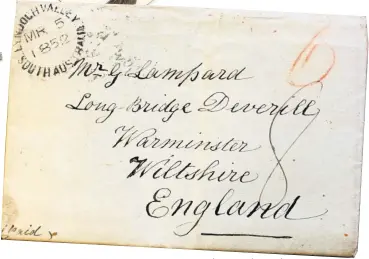 LYNDOCH VALLEY
MR 5
1859
SOUTH AUSTRALIA
6
Mr G Lampard
Long-Bridge Deverill
Warminster
Wiltshire
8
England
Paid